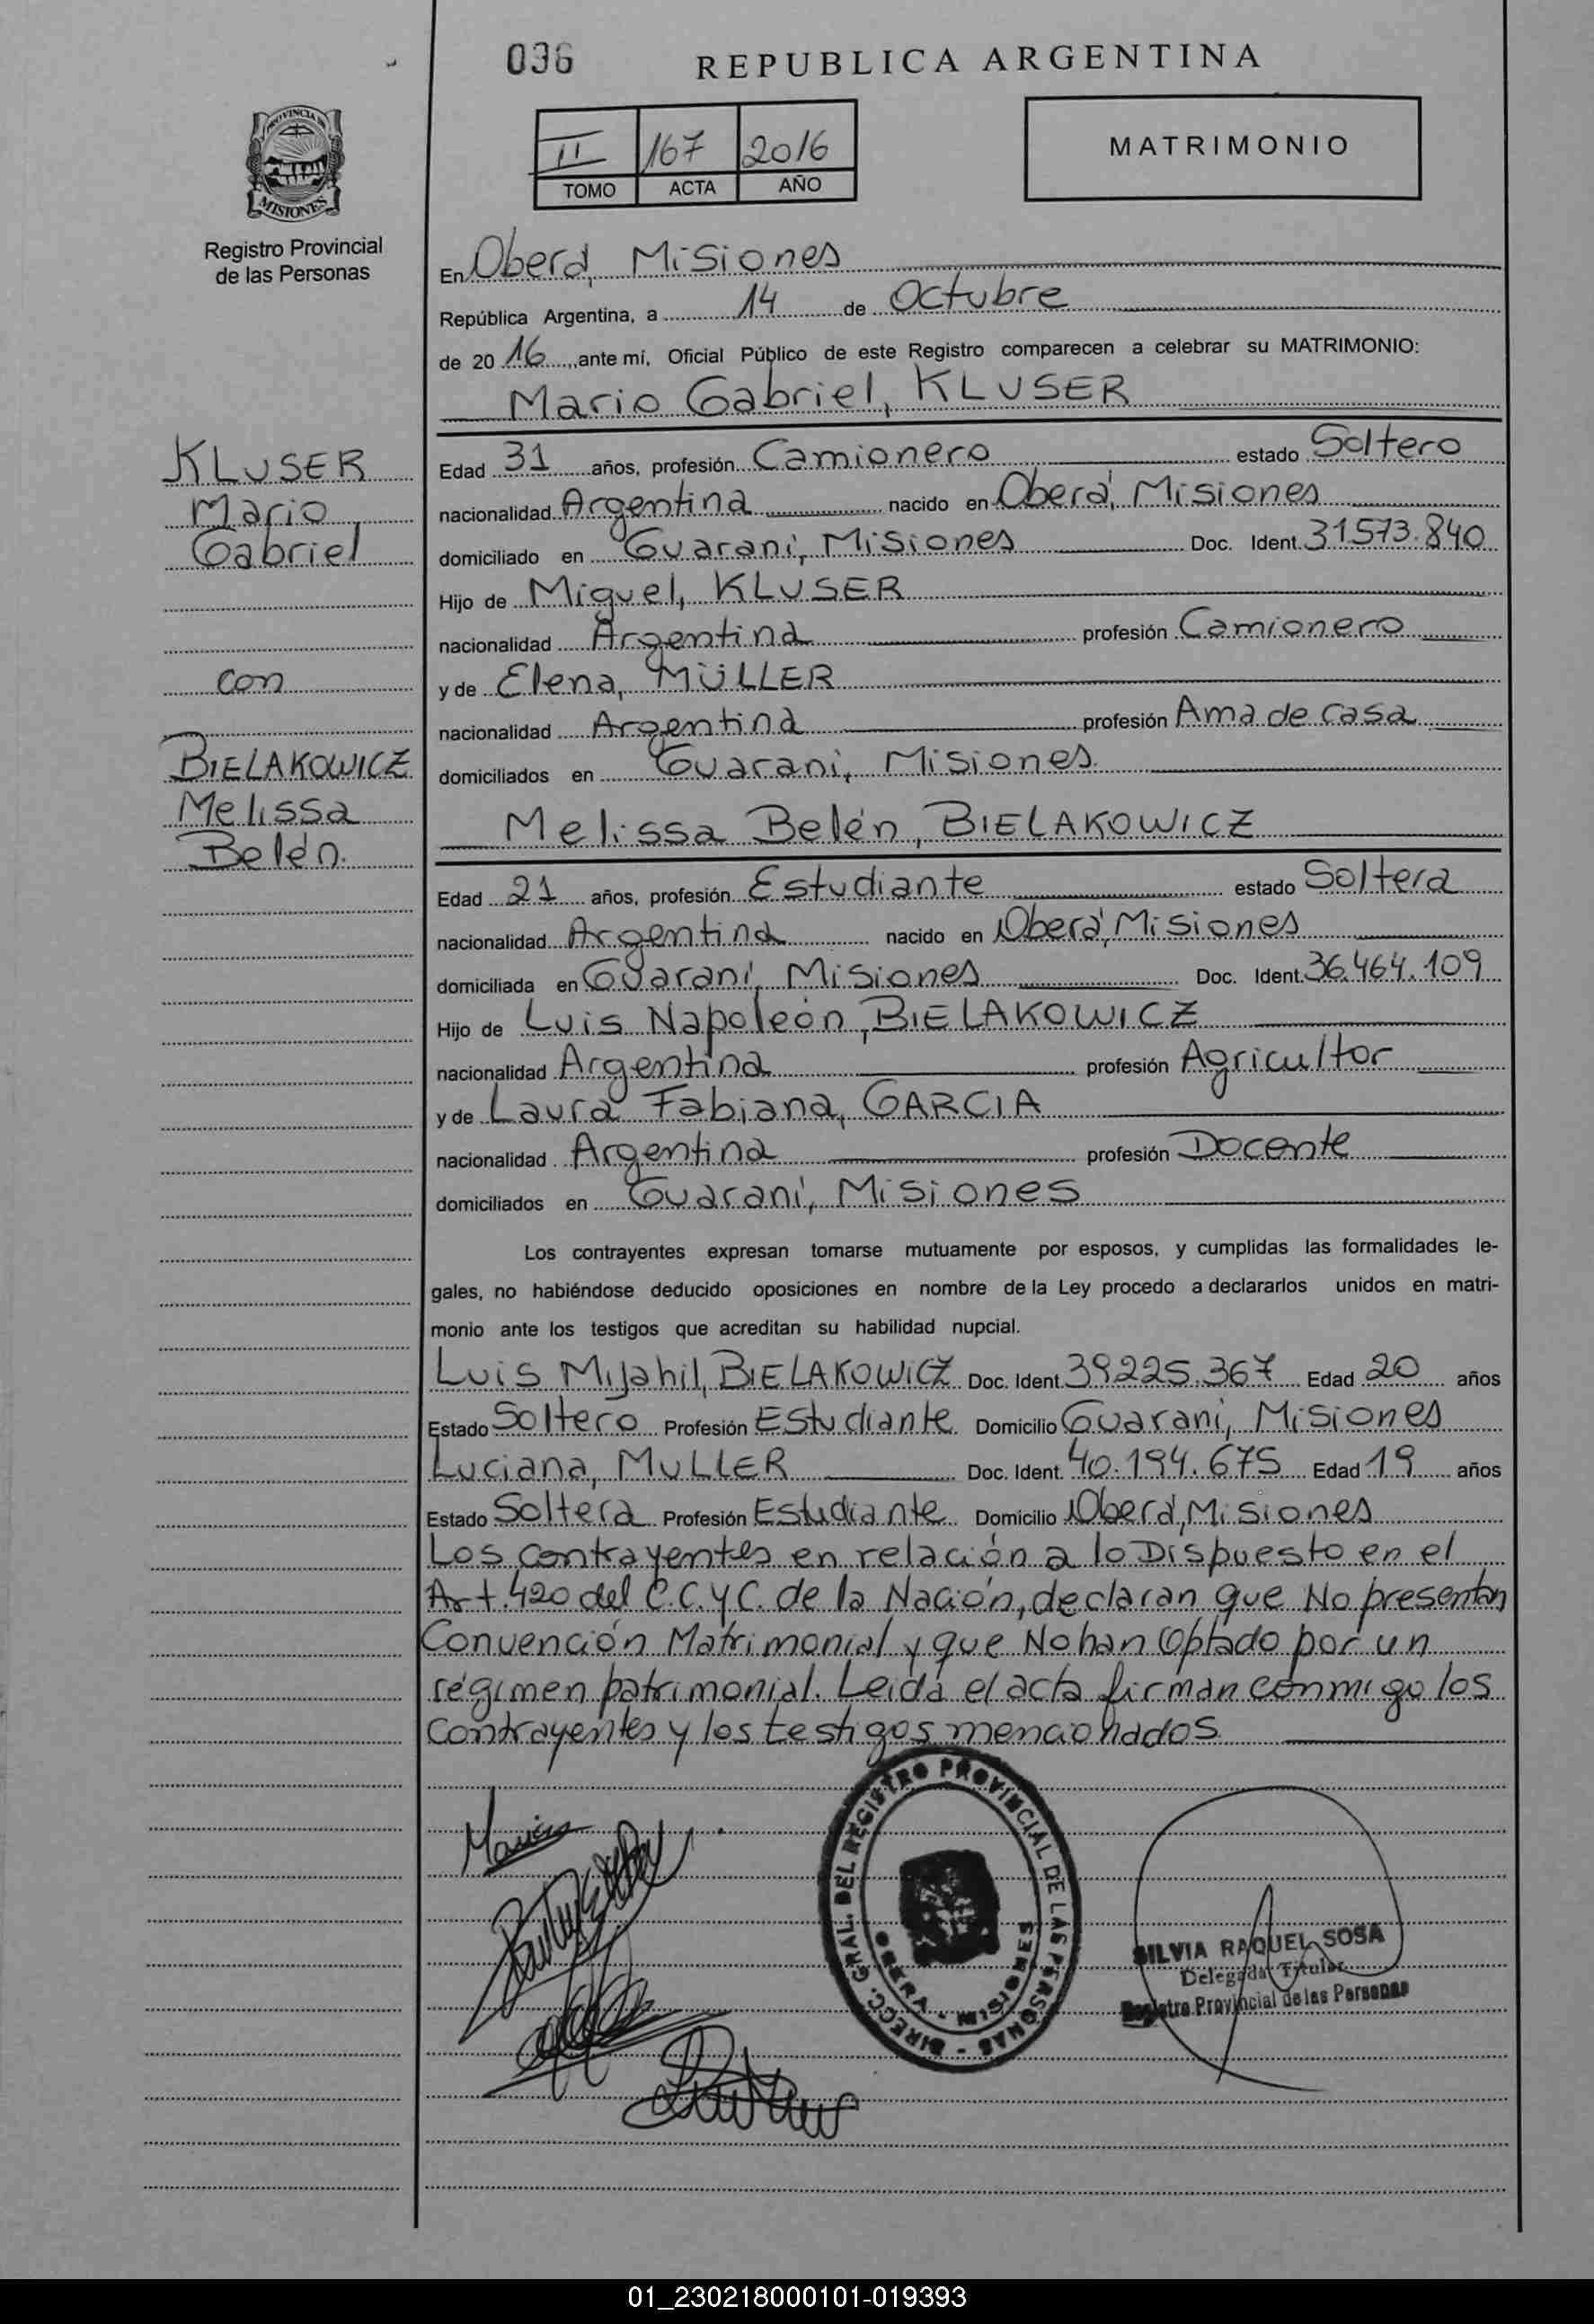 036
REPUBLICA ARGENTINA
PROVINCIA DE
MISIONES
Registro Provincial
de las Personas
II 167 2016
TOMO ACTA AÑO
MATRIMONIO
En Oberá, Misiones
República Argentina, a 14 de Octubre
de 20 16, ante mí, Oficial Público de este Registro comparecen a celebrar su MATRIMONIO:
Mario Gabriel, KLUSER
KLUSER
Mario
Gabriel
con
BIELAKOWICZ
Melissa
Belén.
Edad 31 años, profesión Camionero estado Soltero
nacionalidad Argentina nacido en Oberá, Misiones
domiciliado en Guaraní, Misiones Doc. Ident. 31.573.840
Hijo de Miguel, KLUSER
nacionalidad Argentina profesión Camionero
y de Elena, MÜLLER
nacionalidad Argentina profesión Ama de casa
domiciliados en Guaraní, Misiones.
Melissa Belén, BIELAKOWICZ
Edad 21 años, profesión Estudiante estado Soltera
nacionalidad Argentina nacido en Oberá, Misiones
domiciliada en Guaraní, Misiones Doc. Ident. 36.464.109
Hijo de Luis Napoleón, BIELAKOWICZ
nacionalidad Argentina profesión Agricultor
y de Laura Fabiana, GARCIA
nacionalidad Argentina profesión Docente
domiciliados en Guaraní, Misiones
Los contrayentes expresan tomarse mutuamente por esposos, y cumplidas las formalidades le-
gales, no habiéndose deducido oposiciones en nombre de la Ley procedo a declararlos unidos en matri-
monio ante los testigos que acreditan su habilidad nupcial.
Luis Mijahil, BIELAKOWICZ Doc. Ident. 39.225.367 Edad 20 años
Estado Soltero Profesión Estudiante Domicilio Guaraní, Misiones
Luciana, MULLER Doc. Ident. 40.194.675 Edad 19 años
Estado Soltera Profesión Estudiante Domicilio Oberá, Misiones
Los contrayentes en relación a lo Dispuesto en el
Art. 420 del C.C.y C. de la Nación, declaran que No presentan
Convención Matrimonial y que No han Optado por un
régimen patrimonial. Leída el acta firman conmigo los
contrayentes y los testigos mencionados
DIRECC. GRAL. DEL REGISTRO PROVINCIAL DE LAS PERSONAS -
OBERA - MISIONES
SILVIA RAQUEL SOSA
Delegada Titular
Registro Provincial de las Personas
01_230218000101-019393